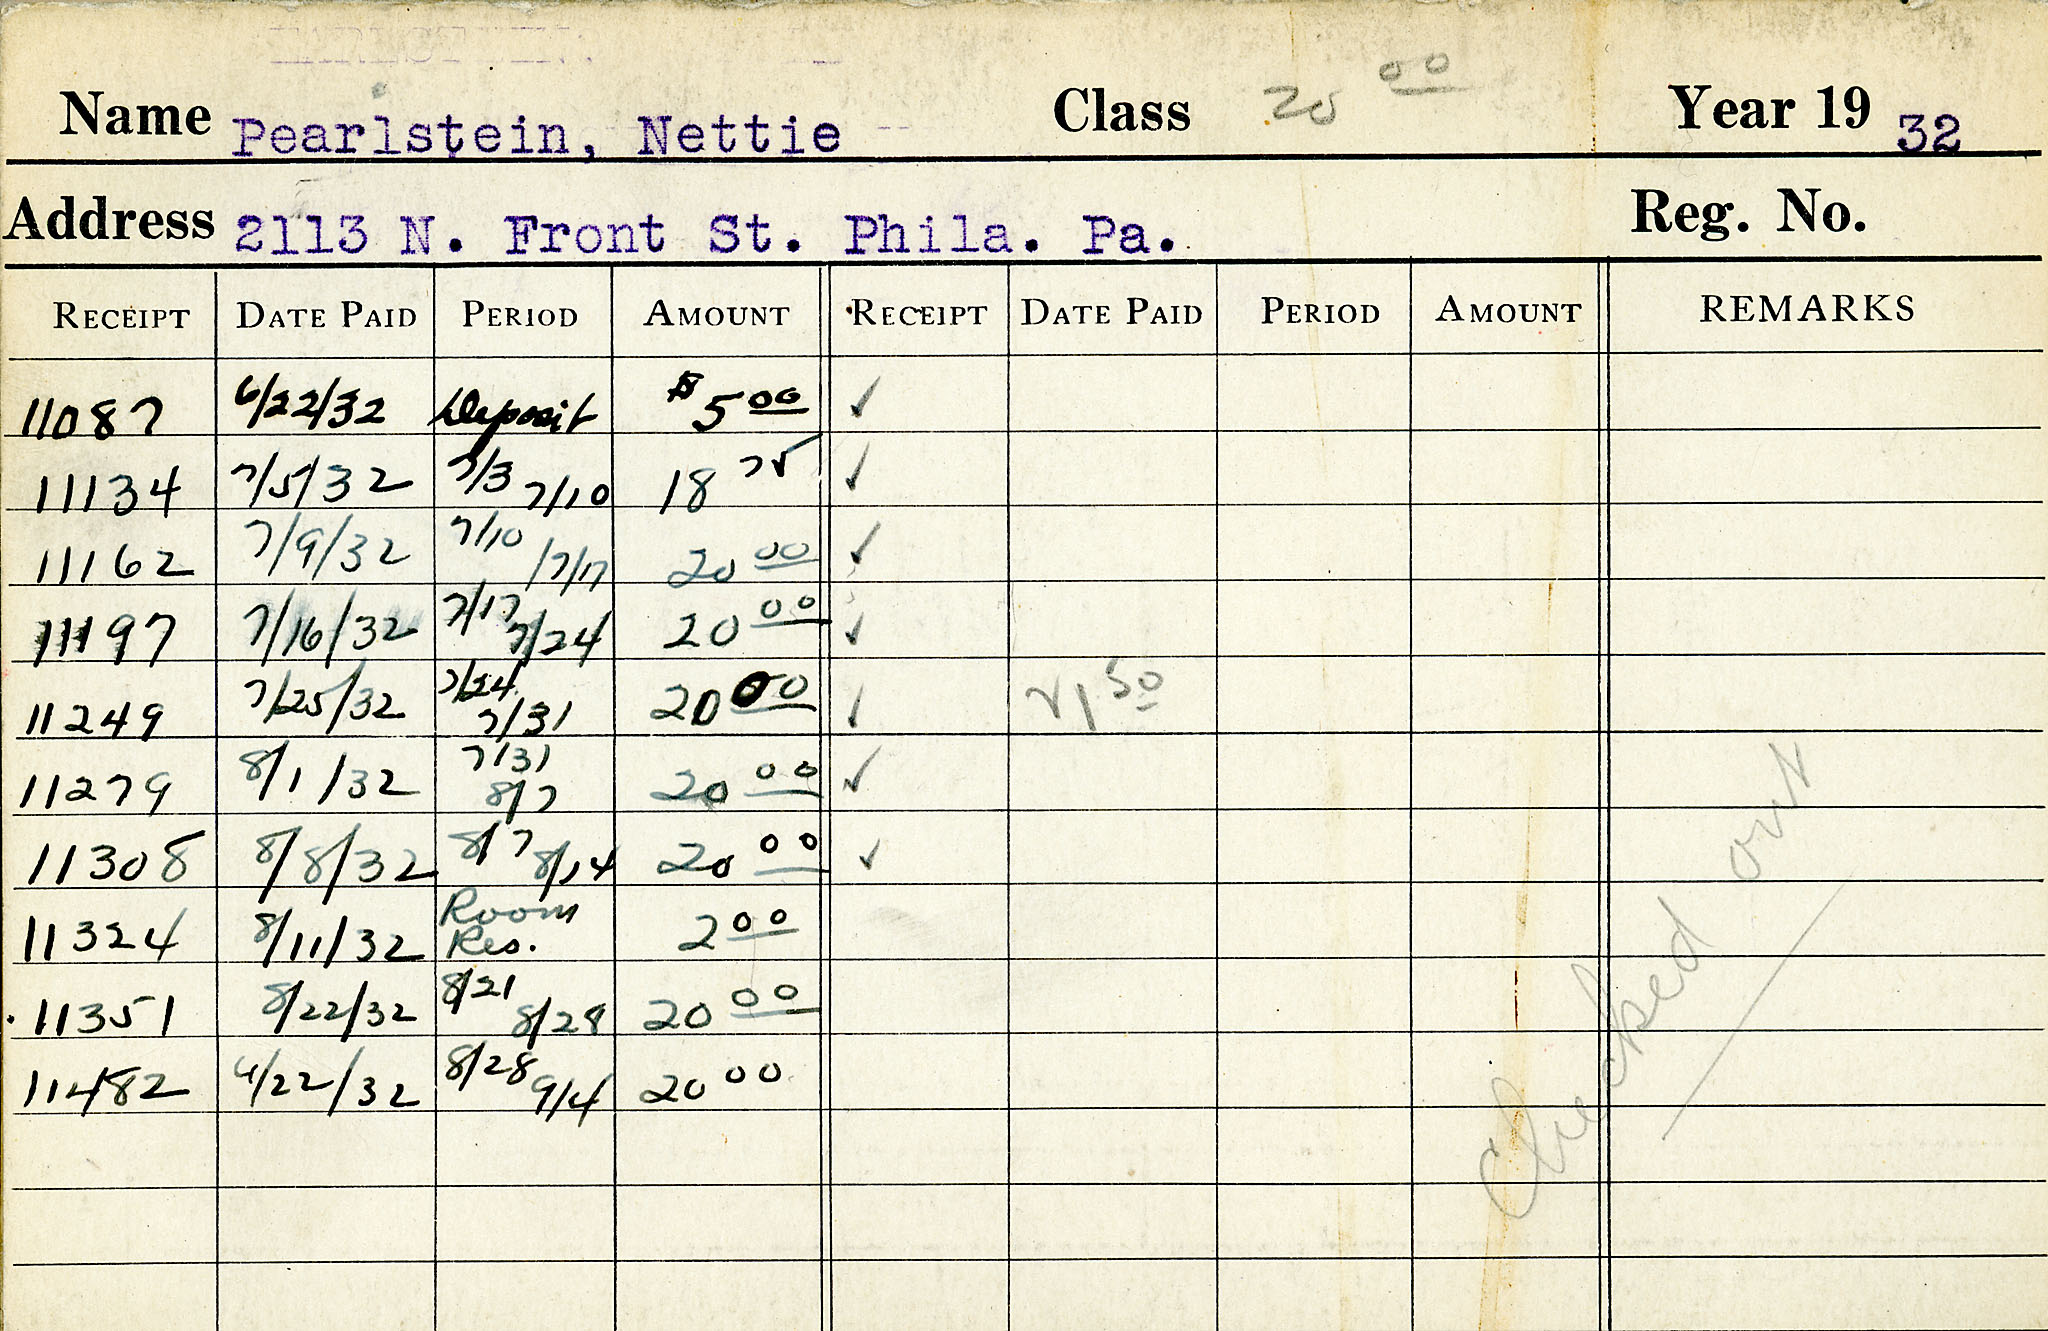 Name Pearlstein, Nettie Class 20 00 Year 19 32
Address 2113 N. Front St. Phila. Pa. Reg. No.
RECEIPT DATE PAID PERIOD AMOUNT RECEIPT DATE PAID PERIOD AMOUNT REMARKS
11087 6/22/32 Deposit $5 00 ✓
11134 7/5/32 7/3 7/10 18 75 ✓
11162 7/9/32 7/10 /7/17 20 00 ✓
11197 7/16/32 7/17 7/24 20 00 ✓
11249 7/25/32 7/24 7/31 20 00 ✓ 50
11279 8/1/32 7/31 8/7 20 00 ✓
11308 8/8/32 8/7 8/14 20 00 ✓
11324 8/11/32 Room Res. 2 00
11351 8/22/32 8/21 8/28 20 00
11482 /22/32 8/28 9/4 20 00
Checked out